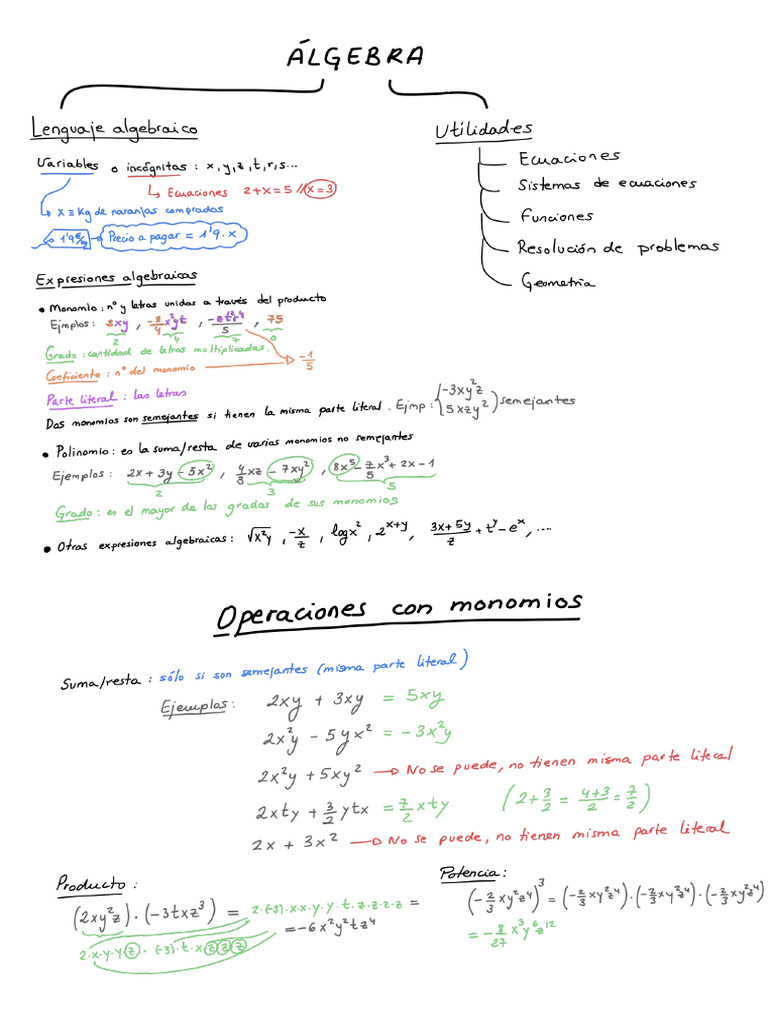 ÁLGEBRA
Lenguaje algebraico
Variables o incógnitas : x, y, z, t, r, s...
↳ Ecuaciones 2+x=5 // x=3
↳ x ≡ Kg de naranjas compradas
1'9€/kg → Precio a pagar = 1'9·x
Utilidades
Ecuaciones
Sistemas de ecuaciones
Funciones
Resolución de problemas
Geometría
Expresiones algebraicas
• Monomio : nº y letras unidas a través del producto
Ejmplos : 3xy, -3/4 x²yt, -zt²r⁴/5, 75
2 4 7 0
Grado : cantidad de letras multiplicadas.
Coeficiente : nº del monomio → -1/5
Parte literal : las letras
Dos monomios son semejantes si tienen la misma parte literal. Ejmp : {-3xy²z
5xzy²) semejantes
• Polinomio : es la suma/resta de varios monomios no semejantes
Ejemplos : 2x + 3y - 5x², 4/3 xz - 7xy², 8x⁵ - 7/5 x³ + 2x - 1
2 3 5
Grado : es el mayor de los grados de sus monomios
• Otras expresiones algebraicas : √x²y, -x/z, log x², 2^(x+y), (3x+5y)/z + t^y - e^x, ....
Operaciones con monomios
Suma/resta : sólo si son semejantes (misma parte literal)
Ejemplos : 2xy + 3xy = 5xy
2x²y - 5yx² = -3x²y
2x²y + 5xy² → No se puede, no tienen misma parte literal
2xty + 3/2 ytx = 7/2 xty (2+3/2 = (4+3)/2 = 7/2)
2x + 3x² → No se puede, no tienen misma parte literal
Producto :
(2xy²z)·(-3txz³) = 2·(-3)·x·x·y·y·t·z·z·z·z =
= -6x²y²tz⁴
2·x·y·y·z · (-3)·t·x·z·z·z
Potencia :
(-2/3 xy²z⁴)³ = (-2/3 xy²z⁴)·(-2/3 xy²z⁴)·(-2/3 xy²z⁴)
= -8/27 x³y⁶z¹²